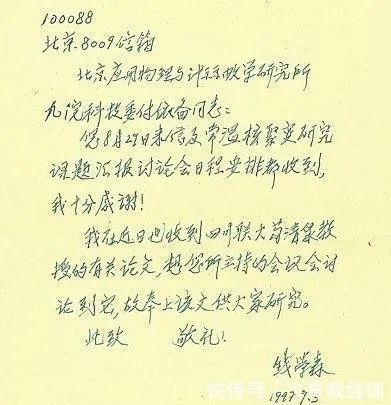 100088
北京8009信箱
北京应用物理与计算数学研究所
九院科技委付依备同志：
您8月29日来信及常温核聚变研究
课题汇报讨论会日程安排都收到，
我十分感谢！
我在近日也收到四川联大苟清泉教
授的有关论文，想您所主持的会议会讨
论到它，故奉上该文供大家研究。
此致 敬礼！
钱学森
1997.9.3
快传号
裁缝铺